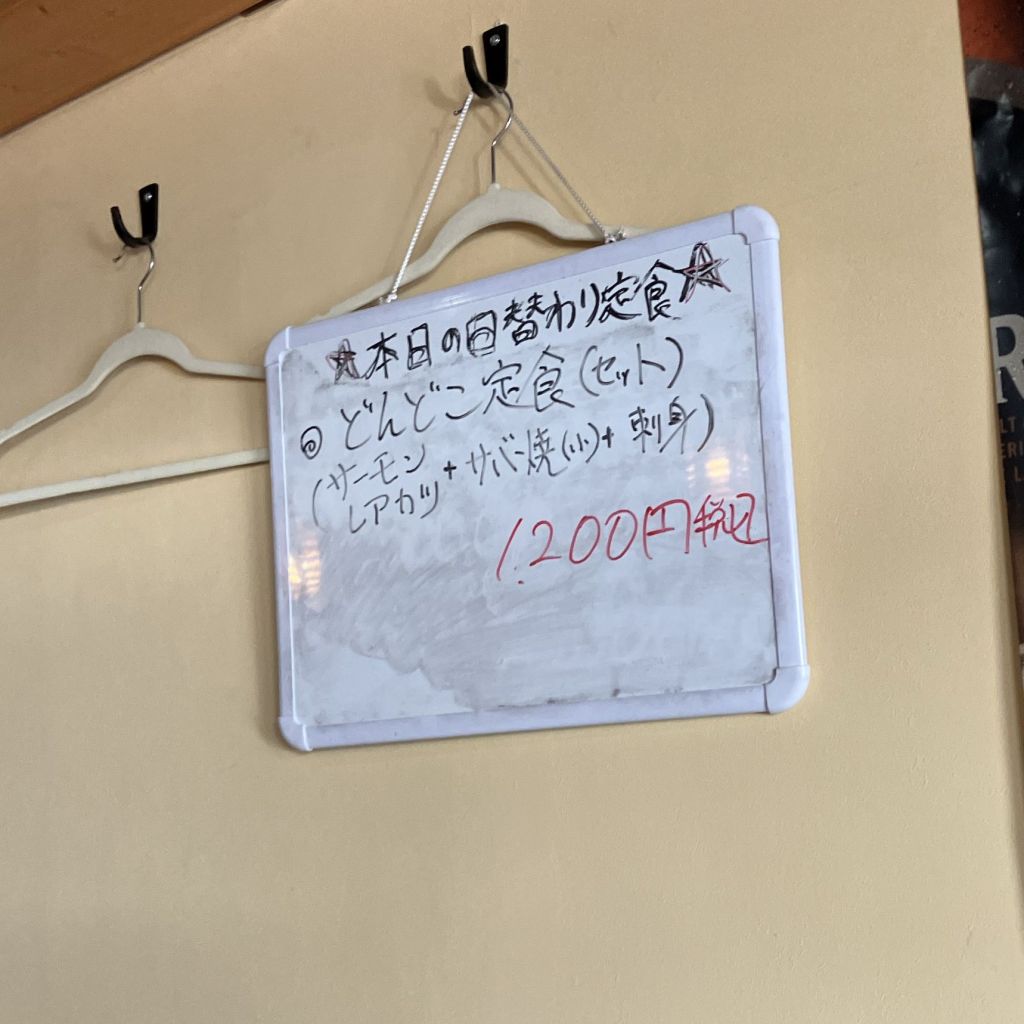 ☆本日の日替わり定食☆
◎ どんどこ定食(セット)
(サーモンレアカツ + サバ焼(小)+ 刺身)
1.200円税込
R